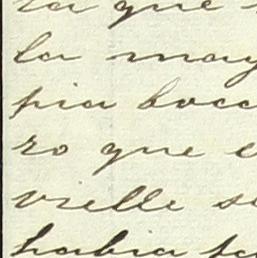 ra que
la may
pia boca
ro que
vielle s
habia